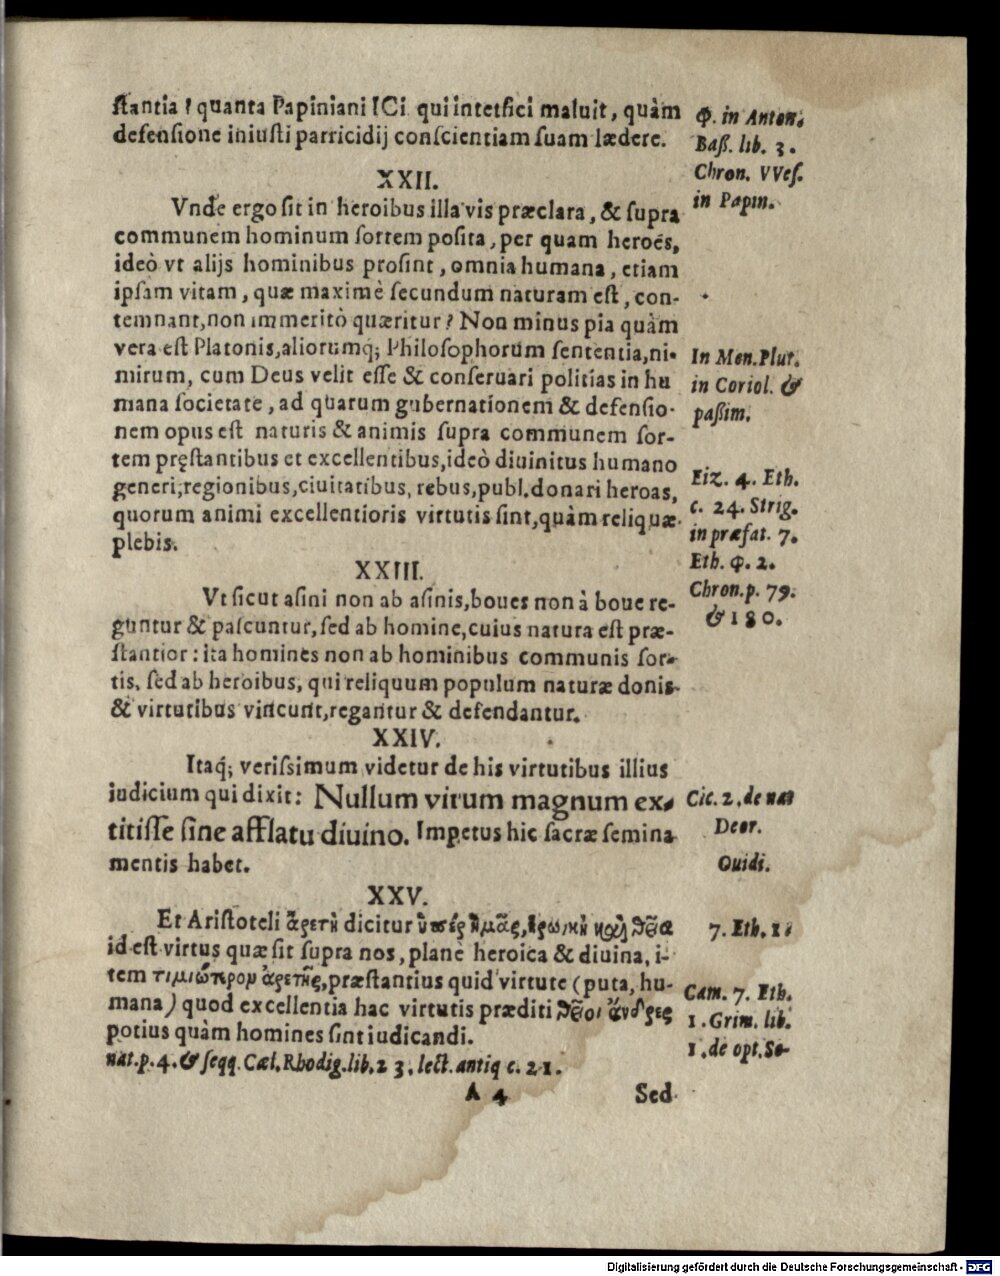 ſtantia? quanta Papiniani ICi qui intetfici maluit, quàm
defenſione iniuſti parricidij conſcientiam ſuam lædere.
φ. in Anton.
Baß. lib. 3.
Chron. VVeſ.
in Papin.
XXII.
Vnde ergo ſit in heroibus illa vis præclara, & ſupra
communem hominum ſortem poſita, per quam heroës,
ideò vt alijs hominibus proſint, omnia humana, etiam
ipſam vitam, quæ maximè ſecundum naturam eſt, con-
temnant, non immeritò quæritur? Non minus pia quàm
vera eſt Platonis, aliorumq; Philoſophorum ſententia, ni-
mirum, cum Deus velit eſſe & conſeruari politias in hu
mana ſocietate, ad quarum gubernationem & defenſio-
nem opus eſt naturis & animis ſupra communem ſor-
tem pręſtantibus et excellentibus, ideò diuinitus humano
generi, regionibus, ciuitatibus, rebus, publ. donari heroas,
quorum animi excellentioris virtutis ſint, quàm reliquæ
plebis.
In Men. Plut.
in Coriol. &
paßim.
Eiz. 4. Eth.
c. 24. Strig.
in præfat. 7.
Eth. φ. 2.
Chron. p. 79.
& 180.
XXIII.
Vt ſicut aſini non ab aſinis, boues non à boue re-
guntur & paſcuntur, ſed ab homine, cuius natura eſt præ-
ſtantior: ita homines non ab hominibus communis ſor-
tis, ſed ab heroibus, qui reliquum populum naturæ donis
& virtutibus vincunt, regantur & defendantur.
XXIV.
Itaq; veriſsimum videtur de his virtutibus illius
iudicium qui dixit: Nullum virum magnum ex-
titiſſe ſine afflatu diuino. Impetus hic ſacræ ſemina
mentis habet.
Cic. 2. de nat
Deor.
Ouidi.
XXV.
Et Ariſtoteli ἀρετὴ dicitur ὑπὲρ ἡμᾶς, ἡρωικὴ καὶ θεῖα
id eſt virtus quæ ſit ſupra nos, planè heroica & diuina, i-
tem τιμιώτερον ἀρετῆς, præſtantius quid virtute (puta, hu-
mana) quod excellentia hac virtutis præditi θεῖοι ἄνδρες
potius quàm homines ſint iudicandi.
7. Eth. 1.
Cam. 7. Eth.
1. Grim. lib.
1. de opt. Se-
nat. p. 4. & ſeqq. Cæl. Rhodig. lib. 23. lect. antiq c. 21.
A 4
Sed
Digitalisierung gefördert durch die Deutsche Forschungsgemeinschaft - DFG